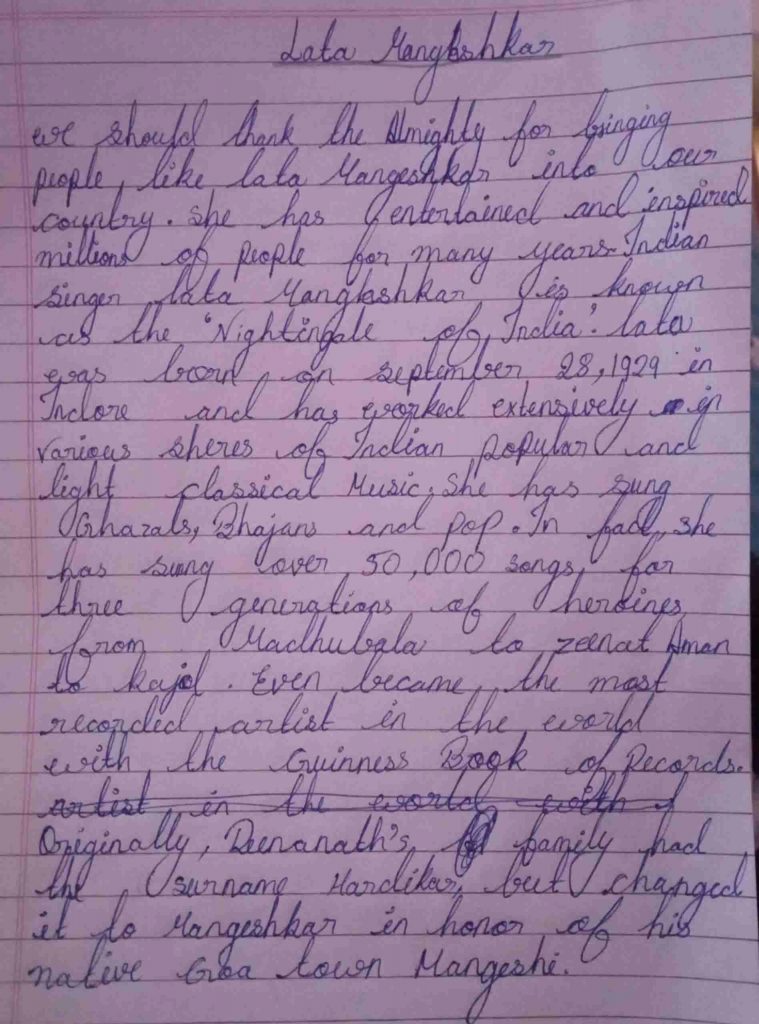 Lata Mangeshkar
we should thank the Almighty for bringing
people, like lata Mangeshkar into our
country. She has entertained and inspired
millions of people for many years. Indian
singer lata Mangeshkar is known
as the 'Nightingale of India'. lata
was born on September 28, 1929 in
Indore and has worked extensively in
various sheres of Indian popular and
light classical Music. She has sung
Ghazals, Bhajans and pop. In fact, she
has sung over 50,000 songs, for
three generations of heroines
from Madhubala to zeenat Aman
to kajol. Even became the most
recorded artist in the world
with the Guinness Book of Records.
artist in the world with
Originally, Deenanath's family had
the surname Hardikar, but changed
it to Mangeshkar in honor of his
native Goa town Mangeshi.